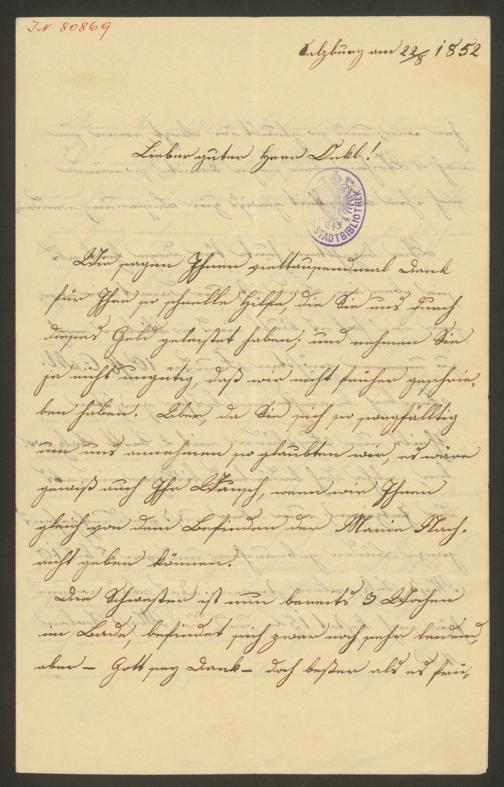 IN 80869
Salzburg am 22/8 1852
Lieber guter Herr Onkl!
STADTBIBLIOTHEK
Wir sagen Ihnen vieltausendmal Dank
für Ihre so schnelle Hilfe, die Sie uns durch
dieses Geld geleistet haben; und nehmen Sie
ja nicht ungütig, daß wir nicht früher geschrie-
ben haben. Aber, da Sie sich so sorgfälltig
um uns annehmen so glaubten wir, es wäre
gewiß auch Ihr Wunsch, wenn wir Ihnen
gleich von dem Befinden der Marie Nach-
richt geben können.
Die Schwester ist nun bereits 3 Wochen
im Bade, befindet sich zwar noch sehr leidend,
aber – Gott sey Dank – doch beßer als es frü-